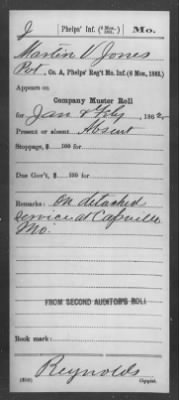 J Phelps' Inf. (6 Mos., 1861.) Mo.
Martin V. Jones
Pvt., Co. A, Phelps' Reg't Mo. Inf. (6 Mos., 1861.)
Appears on
Company Muster Roll
for Jan & Feby, 1862.
Present or absent Absent
Stoppage, $ 100 for
Due Gov't, $ 100 for
Remarks: On detached
service at Capville
Mo.
FROM SECOND AUDITOR'S ROLL
Book mark:
Reynolds
(358) Copyist.